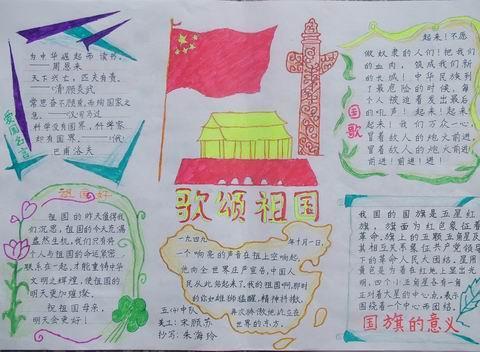 为中华崛起而读书。
——周恩来
天下兴亡，匹夫有责。
——(清)顾炎武
常思奋不顾身，而殉国家之
急。——(汉)司马迁
科学没有国界，科学家
却有国界。——(俄)
巴甫洛夫
爱国名言
歌颂祖国
起来！不愿
做奴隶的人们！把我们
的血肉，筑成我们新
的长城！中华民族到
了最危险的时候，每
个人被迫着发出最后
的吼声！起来！起来！
起来！我们万众一心，
冒着敌人的炮火前进，
冒着敌人的炮火前进！
前进！前进！进！
国歌
祖国好
祖国的昨天值得我
们沉思，祖国的今天充满
盎然生机，我们只有将
个人与祖国的命运紧密
联系在一起，才能重铸中华
文明之辉煌，使祖国的
明天更加璀璨。
祝祖国母亲，
明天会更好！
一九四九年十月一日，
一个响亮的声音在祖国上空响起，
他向全世界庄严宣告，中国人
民从此站起来了，我的祖国啊，那时
的你如雄狮猛醒，精神抖擞，
再次骄傲地屹立在
世界的东方。
五(4)中队
美工：宋颜苏
抄写：朱海玲
我国的国旗是五星红
旗，旗面为红色象征着
革命。旗上的五颗五角星及
其相互关系象征共产党领导
下的革命人民大团结。星用
黄色是为着在红地上显出光
明，四个小五角星各有一角
正对着大星的中心点，表示
围绕着一个中心而团结。
国旗的意义